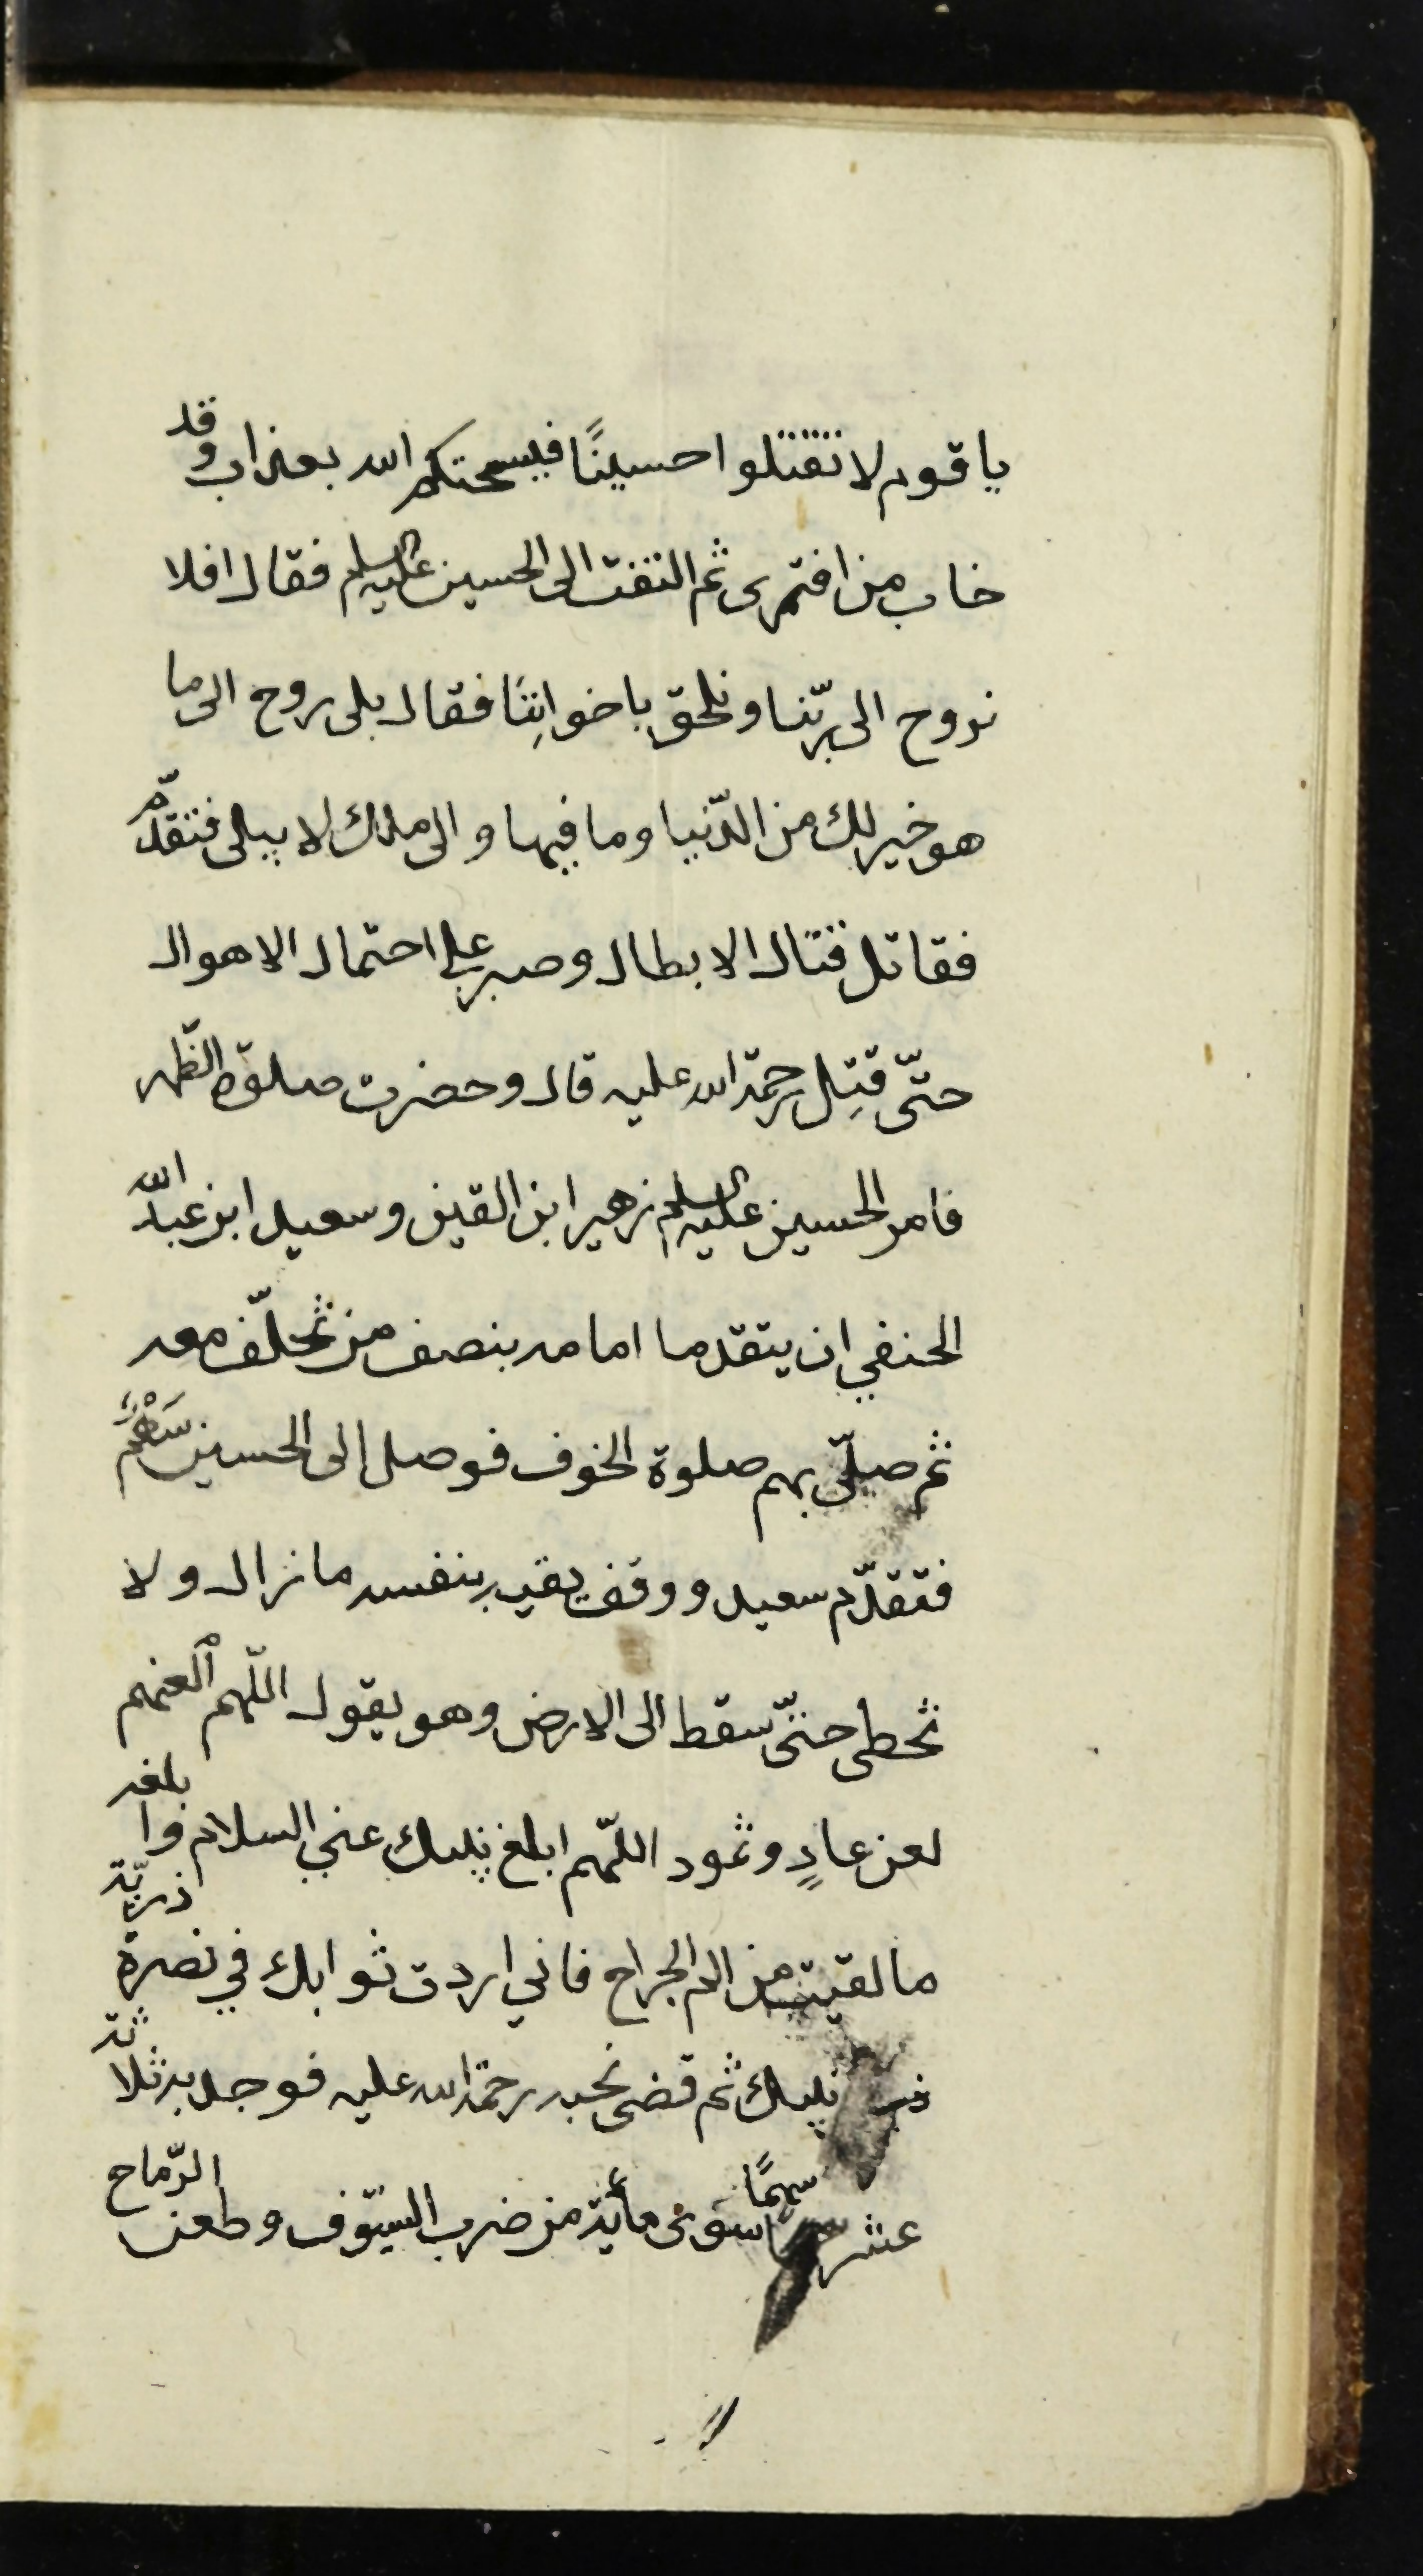 يا قوم لا تقتلوا حسينًا فيسحتكم الله بعذاب وقد
خاب من افترى ثم التفت الى الحسين عليه السلم فقال افلا
نروح الى ربّنا ونلحق باخوانِنَا فقال بلى روح الى ما
هو خير لك من الدّنيا وما فيها والى ملك لا يبلى فتقدّم
فقاتل قتال الابطال وصبر على احتمال الاهوال
حتّى قتِل رحمة الله عليه قال وحضرت صلوة الظّهر
فامر الحسين عليه السلم زهير ابن القين وسعيد ابن عبد الله
الحنفي ان يتقدما امامه بنصف من تخلّف معه
ثم صلّى بهم صلوة الخوف فوصل الى الحسين سَهْمٌ
فتقدّم سعيد ووقف يقيه بنفسه ما زال ولا
تخطى حتّى سقط الى الارض وهو يقول اللّهم العنهم
لعن عادٍ وثمود اللّهم ابلغ نبيك عني السلام وابلغه
ما لقيت من الم الجراح فاني اردت ثوابك في نصرة ذريّة
نبيك ثم قضى نحبه رحمة الله عليه فوجد به ثلاثة
عشر سهمًا سوى مأية من ضرب السيوف وطعن الرّماح